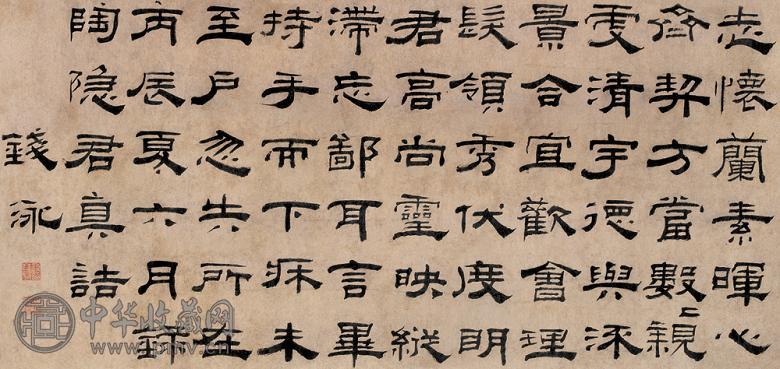 志懷蘭素暉心
齊契方當數〻親
虔清宇德與流
景合宜歡會理
髮領秀伏度明
君高尚靈映縱
滯忘鄙耳言畢
持手而下床未
至戶忽失所在
丙辰夏六月錄
陶隱君真誥
錢泳
中华收藏网